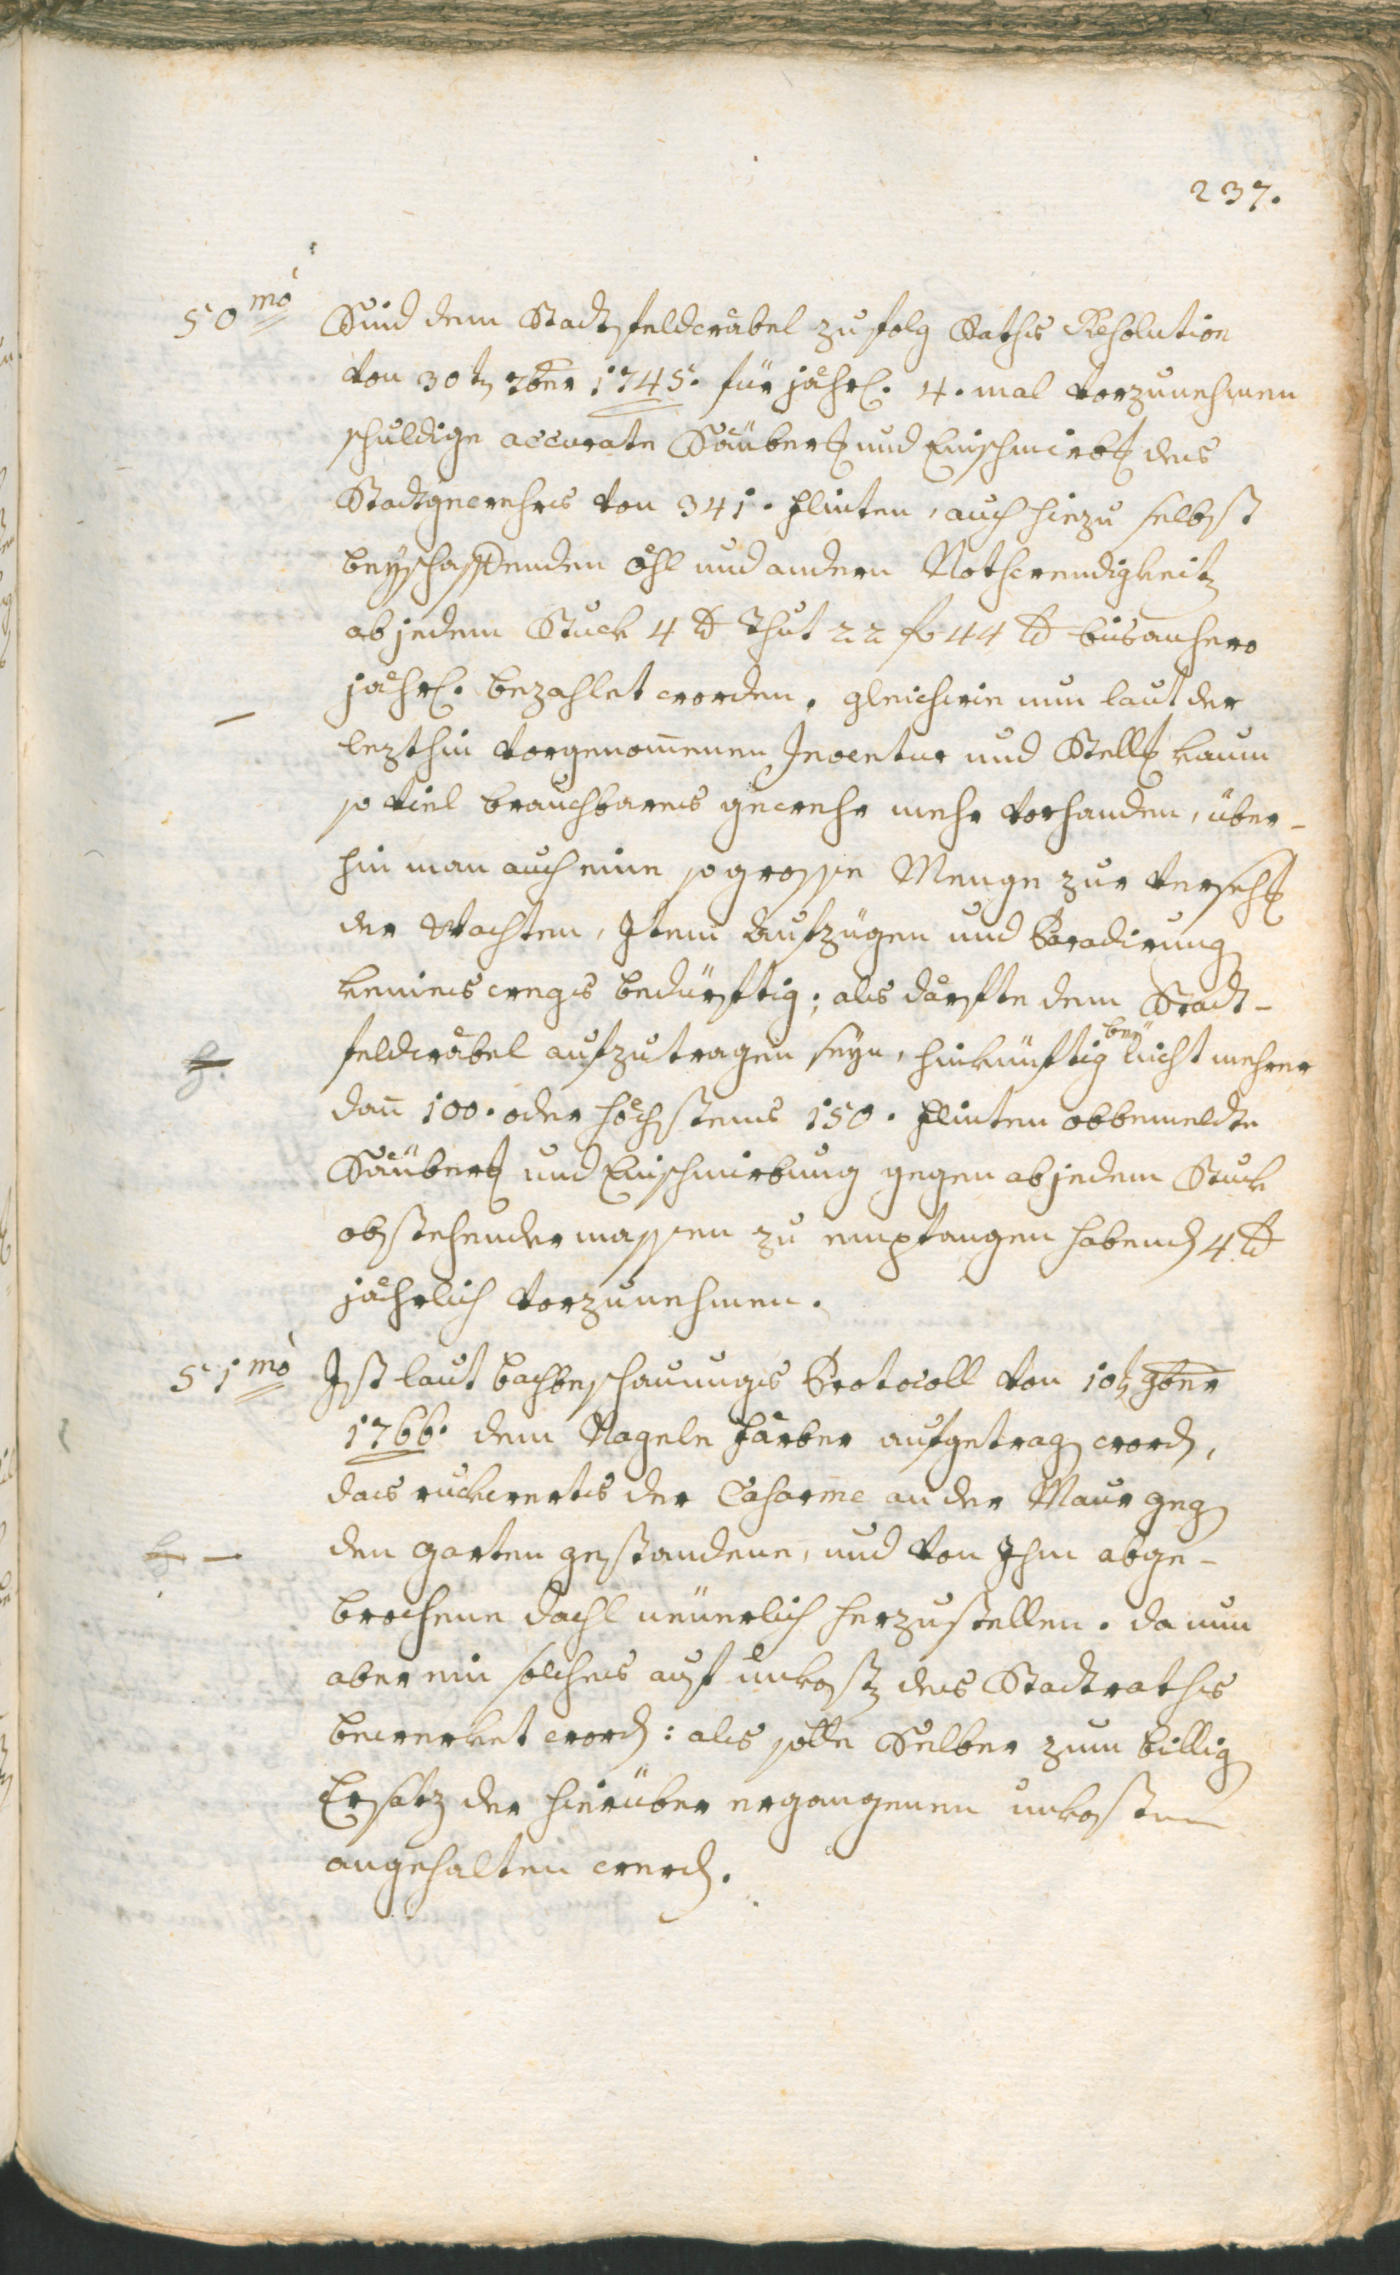 237.
50mo Sind dem Stadtfeldwäbel zufolg Raths Resolution
von 30tn 7ber 1745. für jährl. 4. mal vorzunehmen
schuldige accurate Säuber[un]g und Einschmirb[un]g des
Stadtgewehrs von 341. flinten, auch hiezu selbst
beyschaffenden öhl und andern Nothwendigkeitn
ab jedem Stuck 4 xr thut 22 fl 44 xr bisanhero
jährl. bezahlet worden. gleichwie nun laut der
lezthin vorgenom̄enen Inventur und Stell[un]g kaum
so viel brauchbares gewehr mehr vorhanden, über-
hin man auch eine so grosse Menge zur verseh[un]g
der Wachten, Item Aufzügen und Paradirung
keines wegs bedürftig; als därfte dem Stadt-
feldwäbel aufzutragen seyn, hinkünftig bey nicht mehrer
dan̄ 100. oder höchstens 150. flinten obbemeldte
Säuber[un]g und Einschmirbung gegen ab jedem Stuck
obstehendermassen zu empfangen habend 4 xr
jährlich vorzunehmen.
51mo Ist laut bachbeschauungs Protocoll von 10tn 9ber
1766. dem Nagele färber aufgetragn wordn,
das ruckwerts der Casarme an der Maur gegn
den garten gestandene, und von Ihm abge-
brochene dachl neüerlich herzustellen. da nun
aber ein solches auf unkostn des Stadtraths
bewerket wordn: als solle Selber zum billign
Ersatz der hierüber ergangenen unkosten
angehalten werdn.